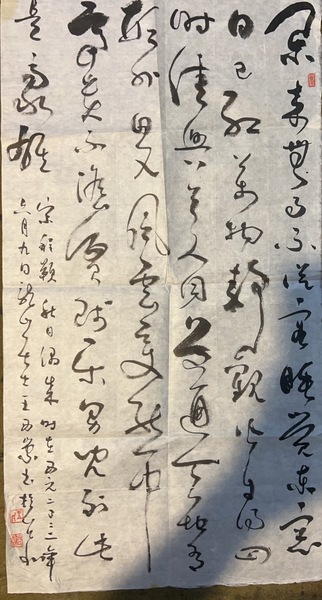 闲来無事不從容睡覺東窗
日已紅萬物静觀皆自得四
時佳興与人同道通天地有
形外思入風雲變態中
富贵不淫貧賤樂男兒到此
是豪雄
宋程顥秋日偶成時在公元二〇二三年
六月九日